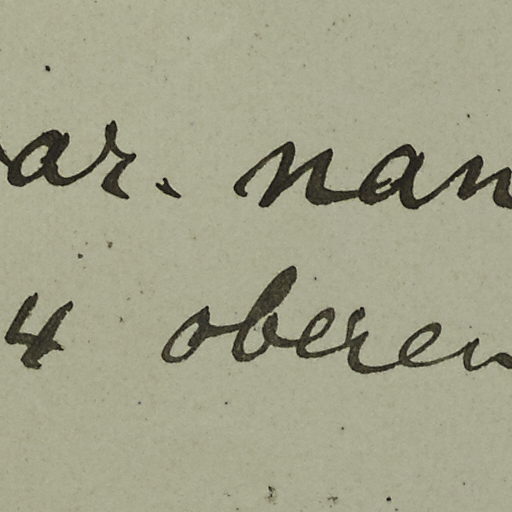 ar. nan
4 oberen